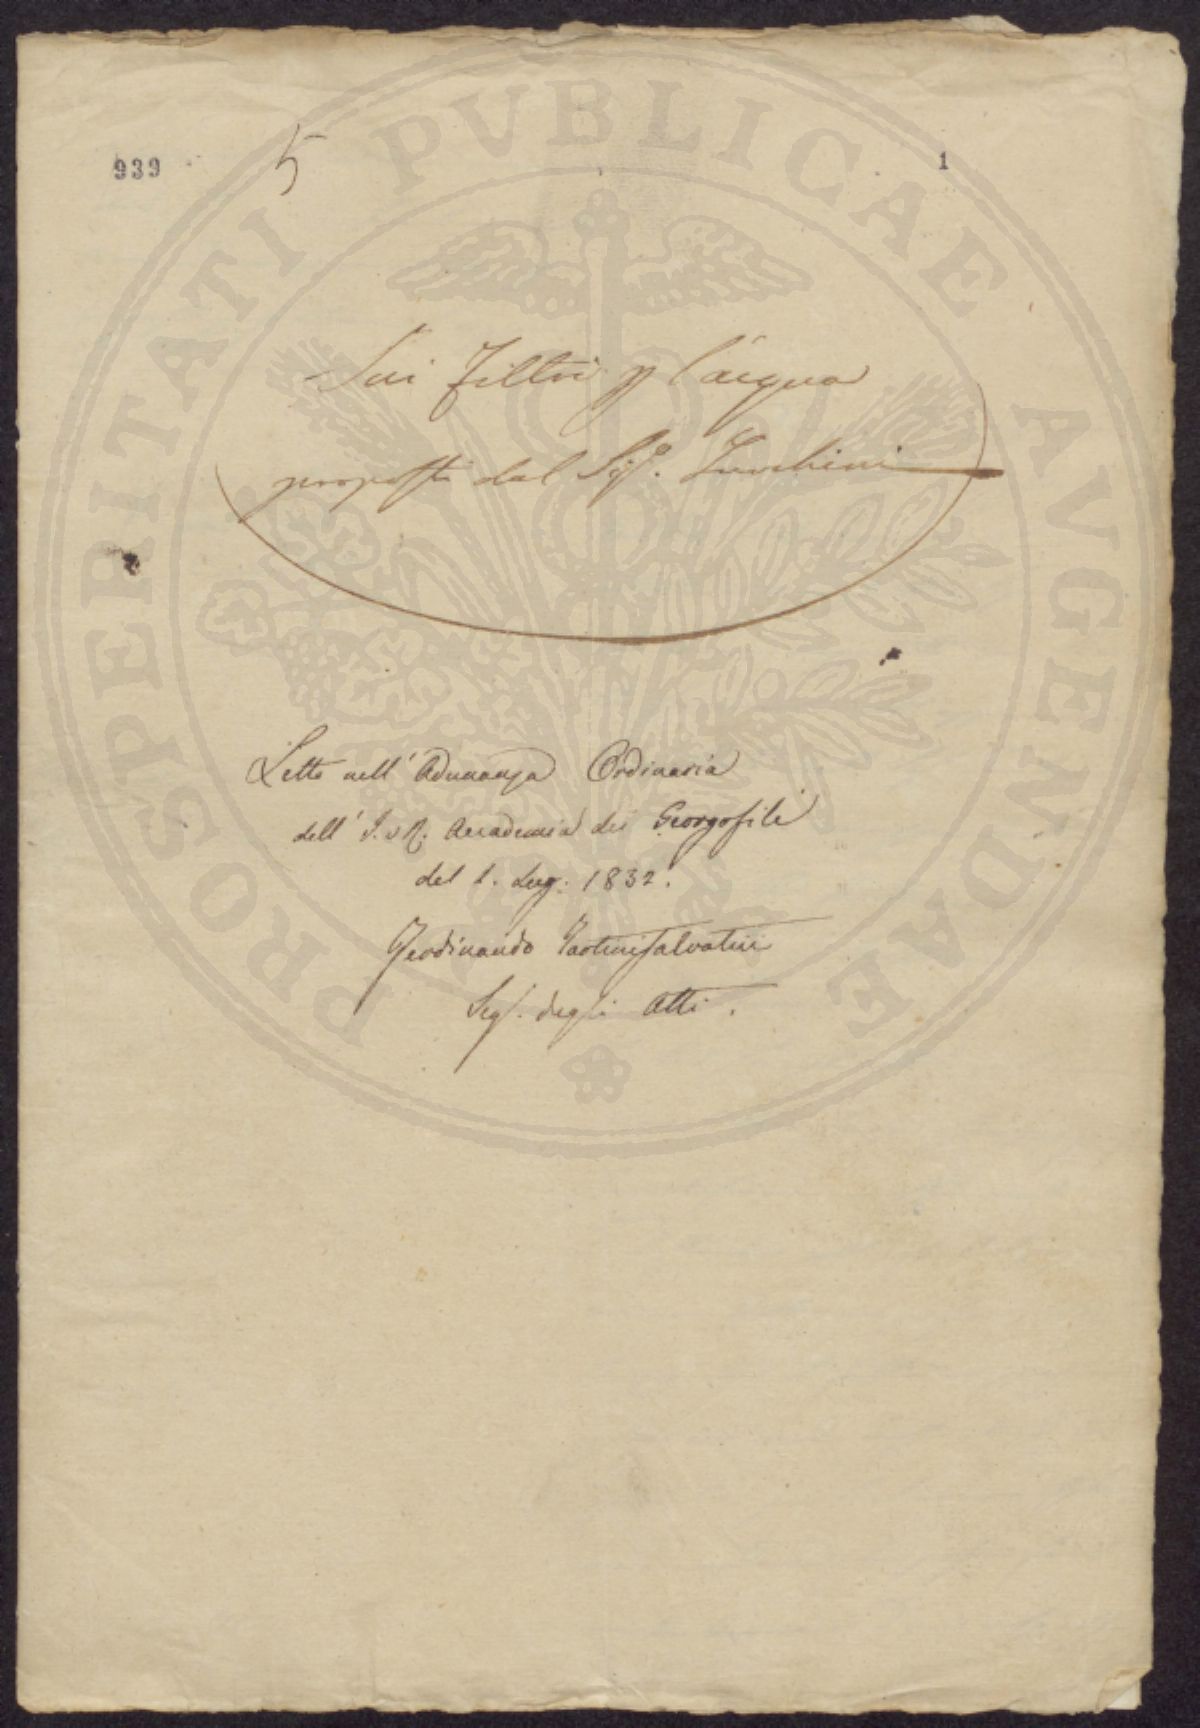 939
5
1
Sui Filtri p l'acqua
proposti dal Sig.r Zucchini
Letto nell' Adunanza Ordinaria
dell' I. e R. Accademia dei Georgofili
del 1. Lug: 1832.
Ferdinando Tartini Salvatici
Seg. degli Atti.
PROSPERITATI PVBLICAE AVGENDAE